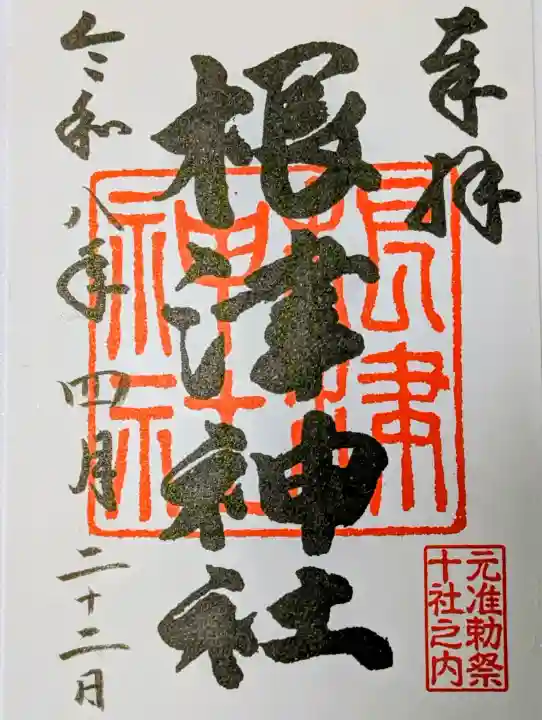 奉拝
根津神社
根津神社
元准勅祭
十社之内
令和八年四月二十二日